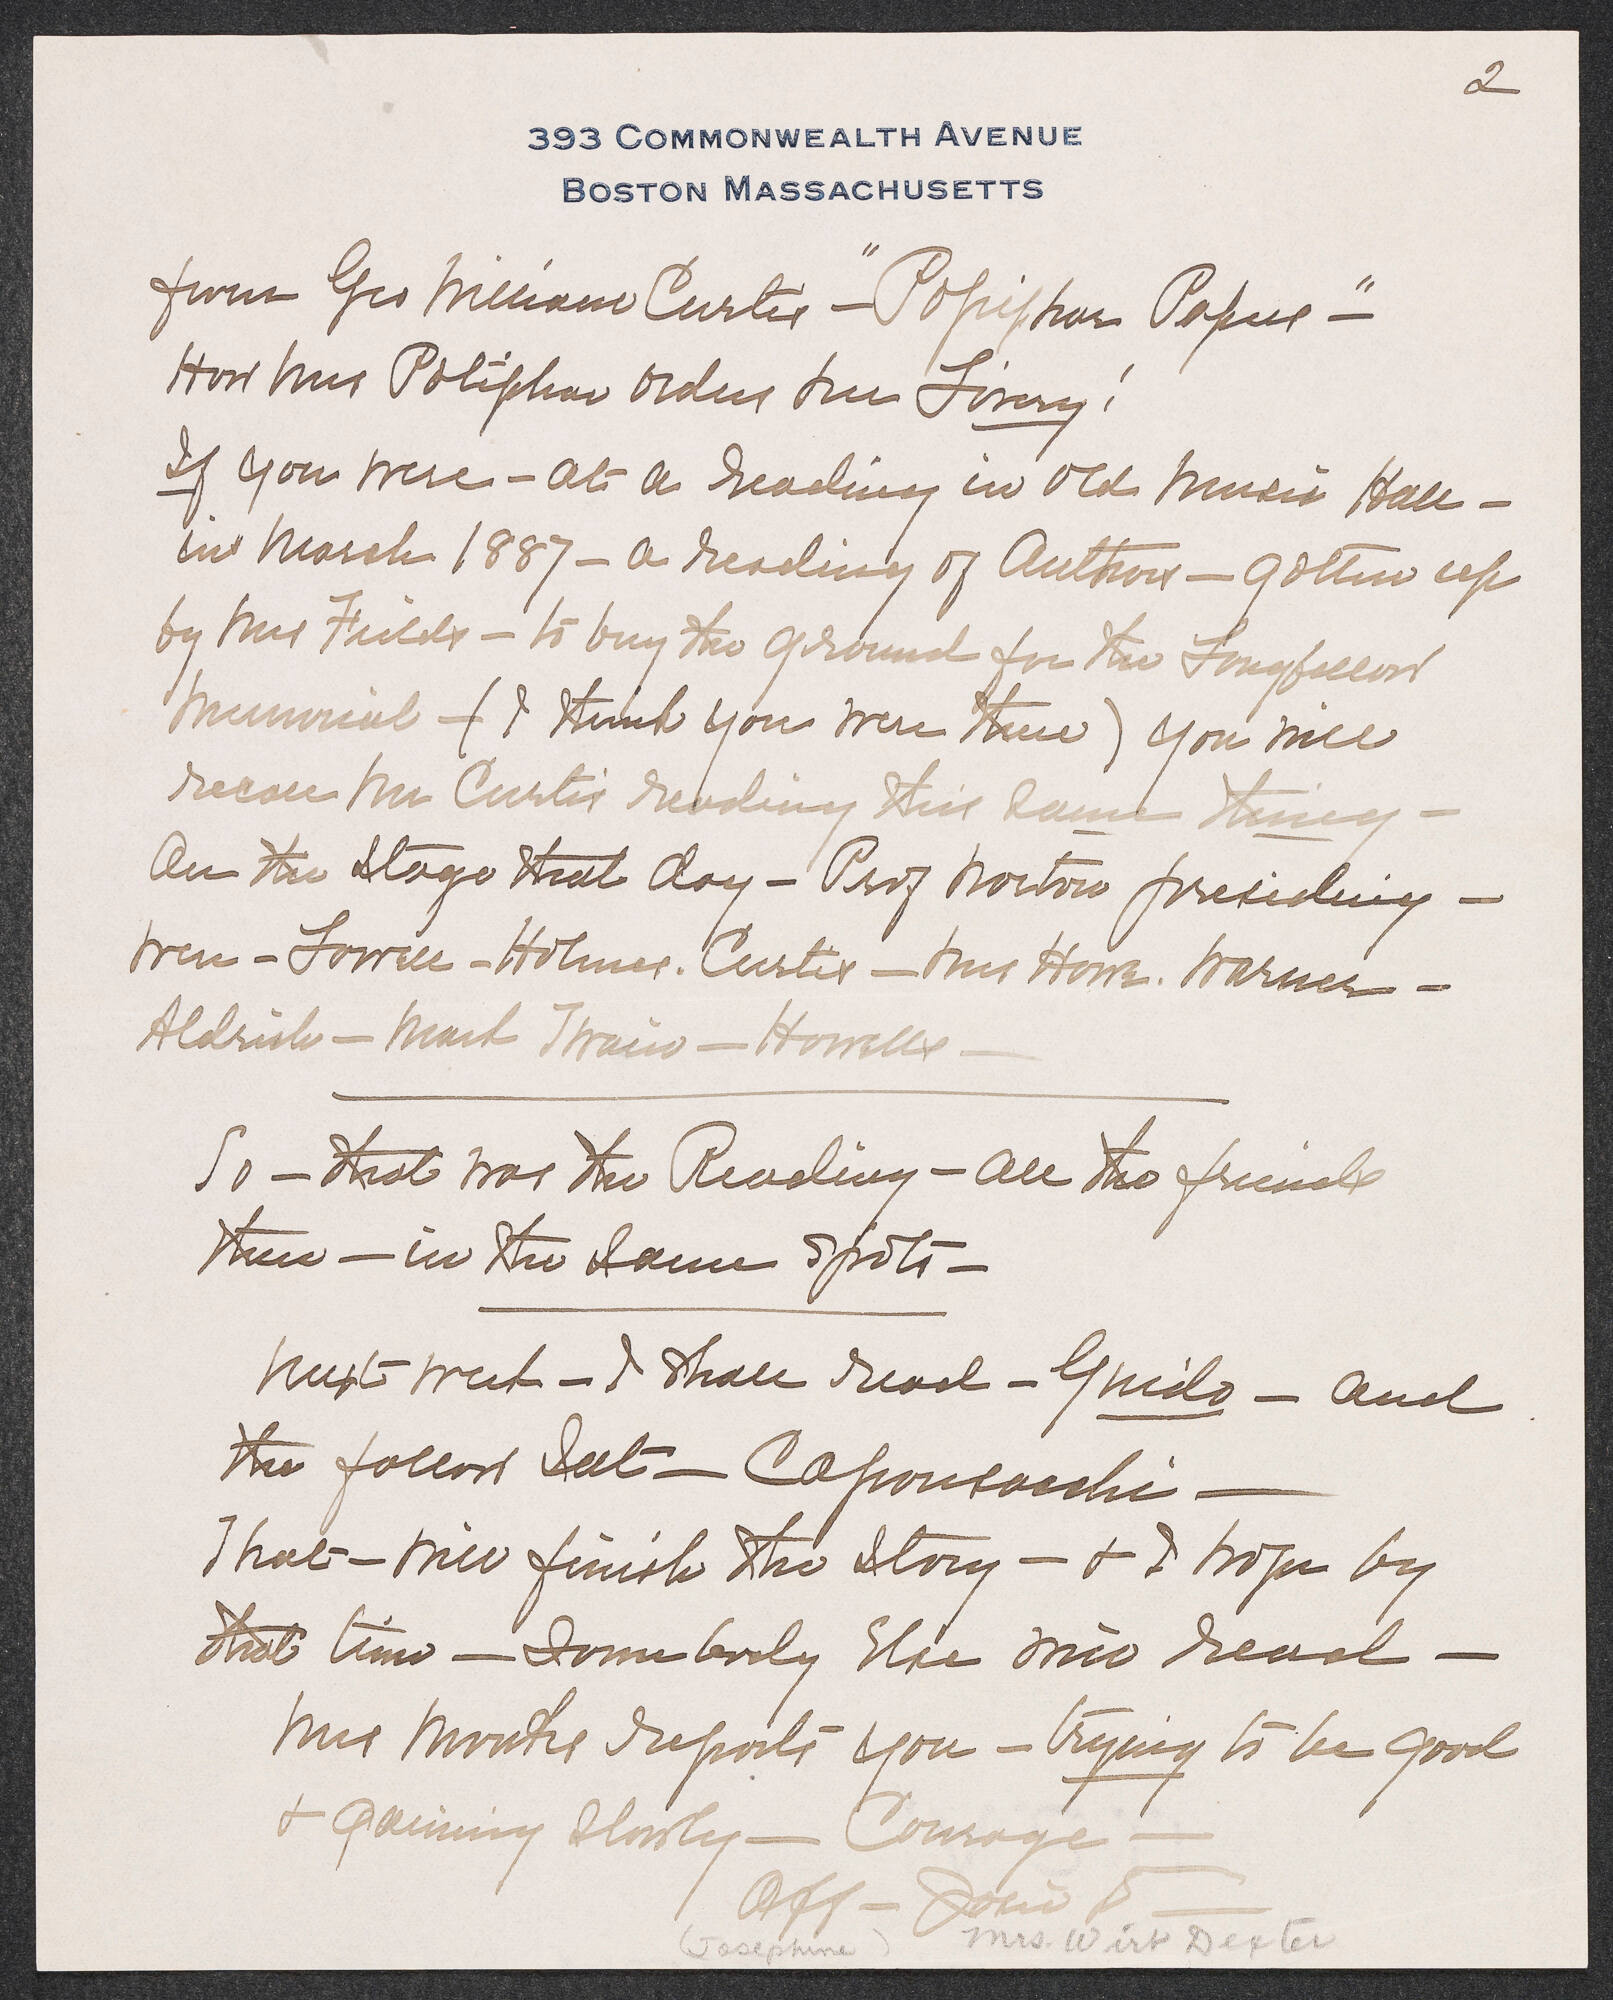 2
393 COMMONWEALTH AVENUE
BOSTON MASSACHUSETTS
from Geo William Curtis — "Potiphar Papers" —
How Mrs Potiphar orders her Livery!
If you were – at a reading in old Music Hall –
in March 1887 – a reading of Authors – gotten up
by Mrs Fields – to buy the ground for the Longfellow
Memorial – (I think you were there) you will
recall Mr Curtis reading this same thing –
On the Stage that day – Prof Norton presiding –
were – Lowell – Holmes. Curtis – Mrs Howe. Warner –
Aldrich – Mark Twain – Howells –
So – that was the Reading – all the friends
there – in the same spots –
Next week – I shall read – Guido – and
the follow Sat – Caponsacchi –
That – will finish the Story – & I hope by
that time – Somebody Else will read –
Mrs reports you – trying to be good
& gaining slowly – Courage –
Aff – Josie
(Josephine) Mrs. Wirt Dexter